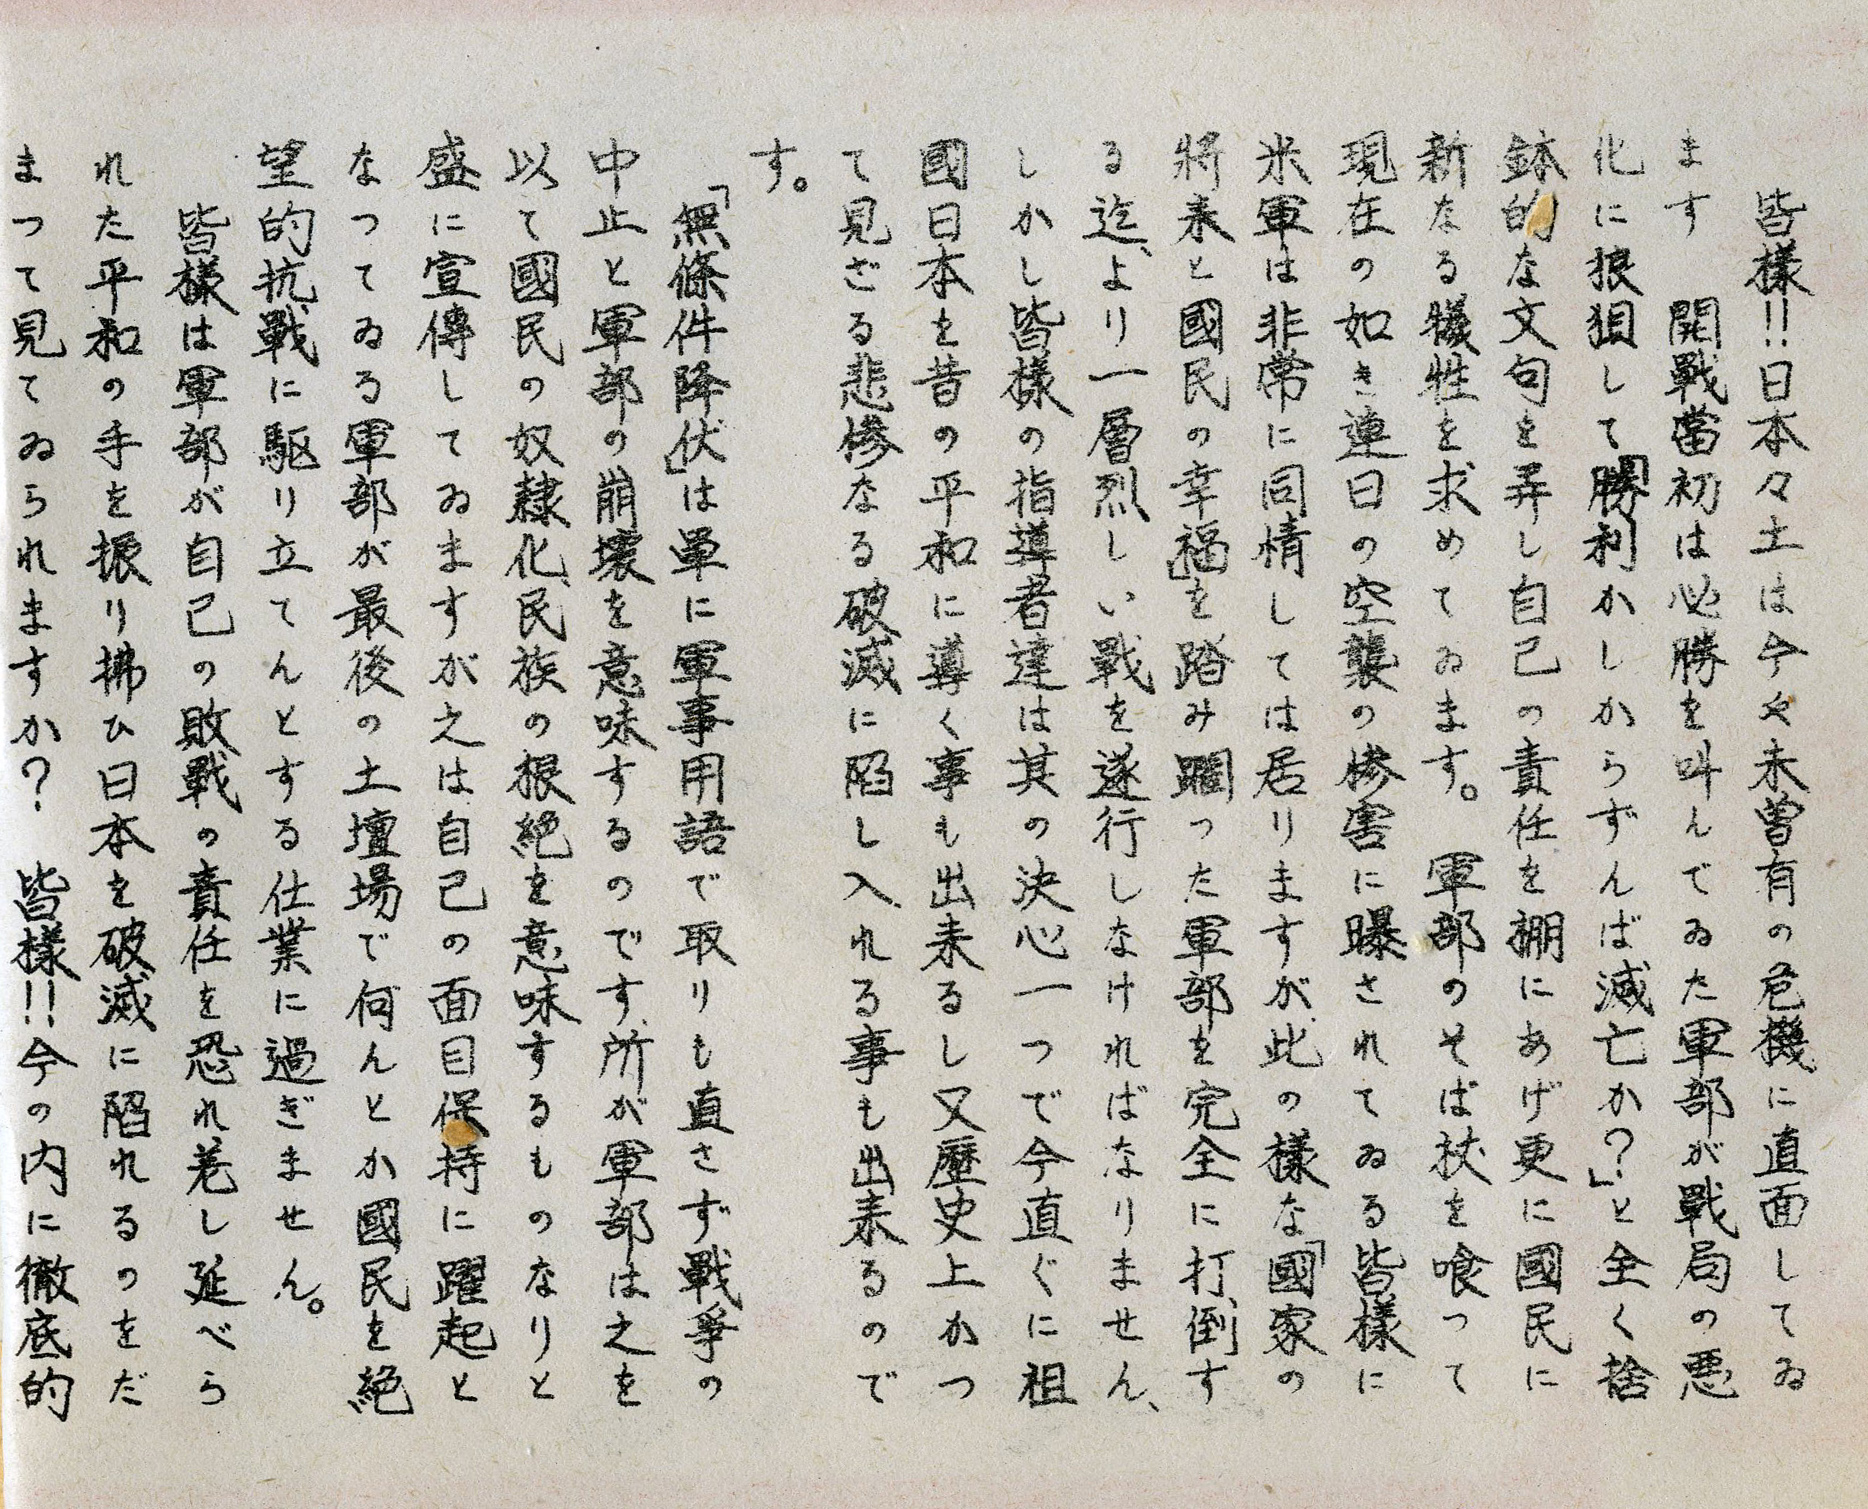 皆様!!日本々土は今や未曽有の危機に直面してゐ
ます 開戰當初は必勝を叫んでゐた軍部が戰局の悪
化に狼狽して「勝利かしからずんば滅亡か?」と全く捨
鉢的な文句を弄し自己の責任を棚にあげ更に國民に
新なる犠牲を求めてゐます。 軍部のそば杖を喰って
現在の如き連日の空襲の惨害に曝されてゐる皆様に
米軍は非常に同情しては居りますが、此の様な「國家の
將来と國民の幸福」を踏み躙った軍部を完全に打倒す
る迄、より一層烈しい戰を遂行しなければなりません、
しかし皆様の指導者達は其の決心一つで今直ぐに祖
國日本を昔の平和に導く事も出来るし又歴史上かつ
て見ざる悲惨なる破滅に陥し入れる事も出来るので
す。
「無條件降伏」は單に軍事用語で取りも直さず戰爭の
中止と軍部の崩壊を意味するのです、所が軍部は之を
以て國民の奴隷化、民族の根絶を意味するものなりと
盛に宣傳してゐますが之は自己の面目保持に躍起と
なってゐる軍部が最後の土壇場で何んとか國民を絶
望的抗戰に駆り立てんとする仕業に過ぎません。
皆様は軍部が自己の敗戰の責任を恐れ差し延べら
れた平和の手を振り拂ひ日本を破滅に陥れるのをだ
まつて見てゐられますか? 皆様!!今の内に徹底的